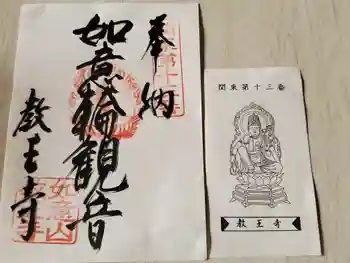 奉納
如意輪観音
教王寺
関東第十三番
教王寺